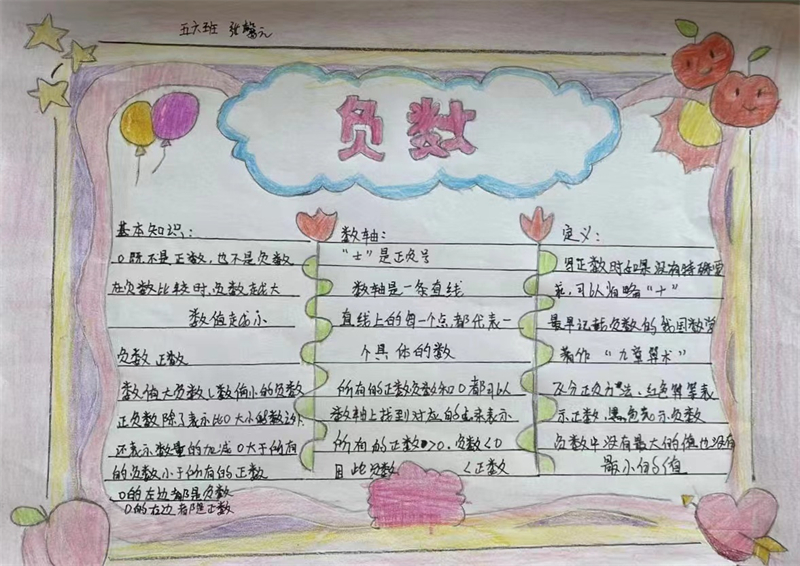 五六班 张馨元
负数
基本知识：
0既不是正数，也不是负数
在负数比较时，负数越大
数值越小
负数 正数
数值大负数〈数值小的负数
正负数除了表示比0大小的数以外
还表示数量的加减0大于所有
的负数小于所有的正数
0的左边都是负数
0的右边都是正数
数轴：
“±”是正负号
数轴是一条直线
直线上的每一个点都代表一
个具体的数
所有的正数负数和0都可以
数轴上找到对应的点来表示
所有的正数>0，负数<0
因此负数 <正数
定义：
写正数时如果没有特殊要
求，可以省略“+”
最早记载负数的我国数学
著作“九章算术”
区分正负方法，红色算筹表
示正数，黑色表示负数
负数中没有最大的值也没有
最小的值